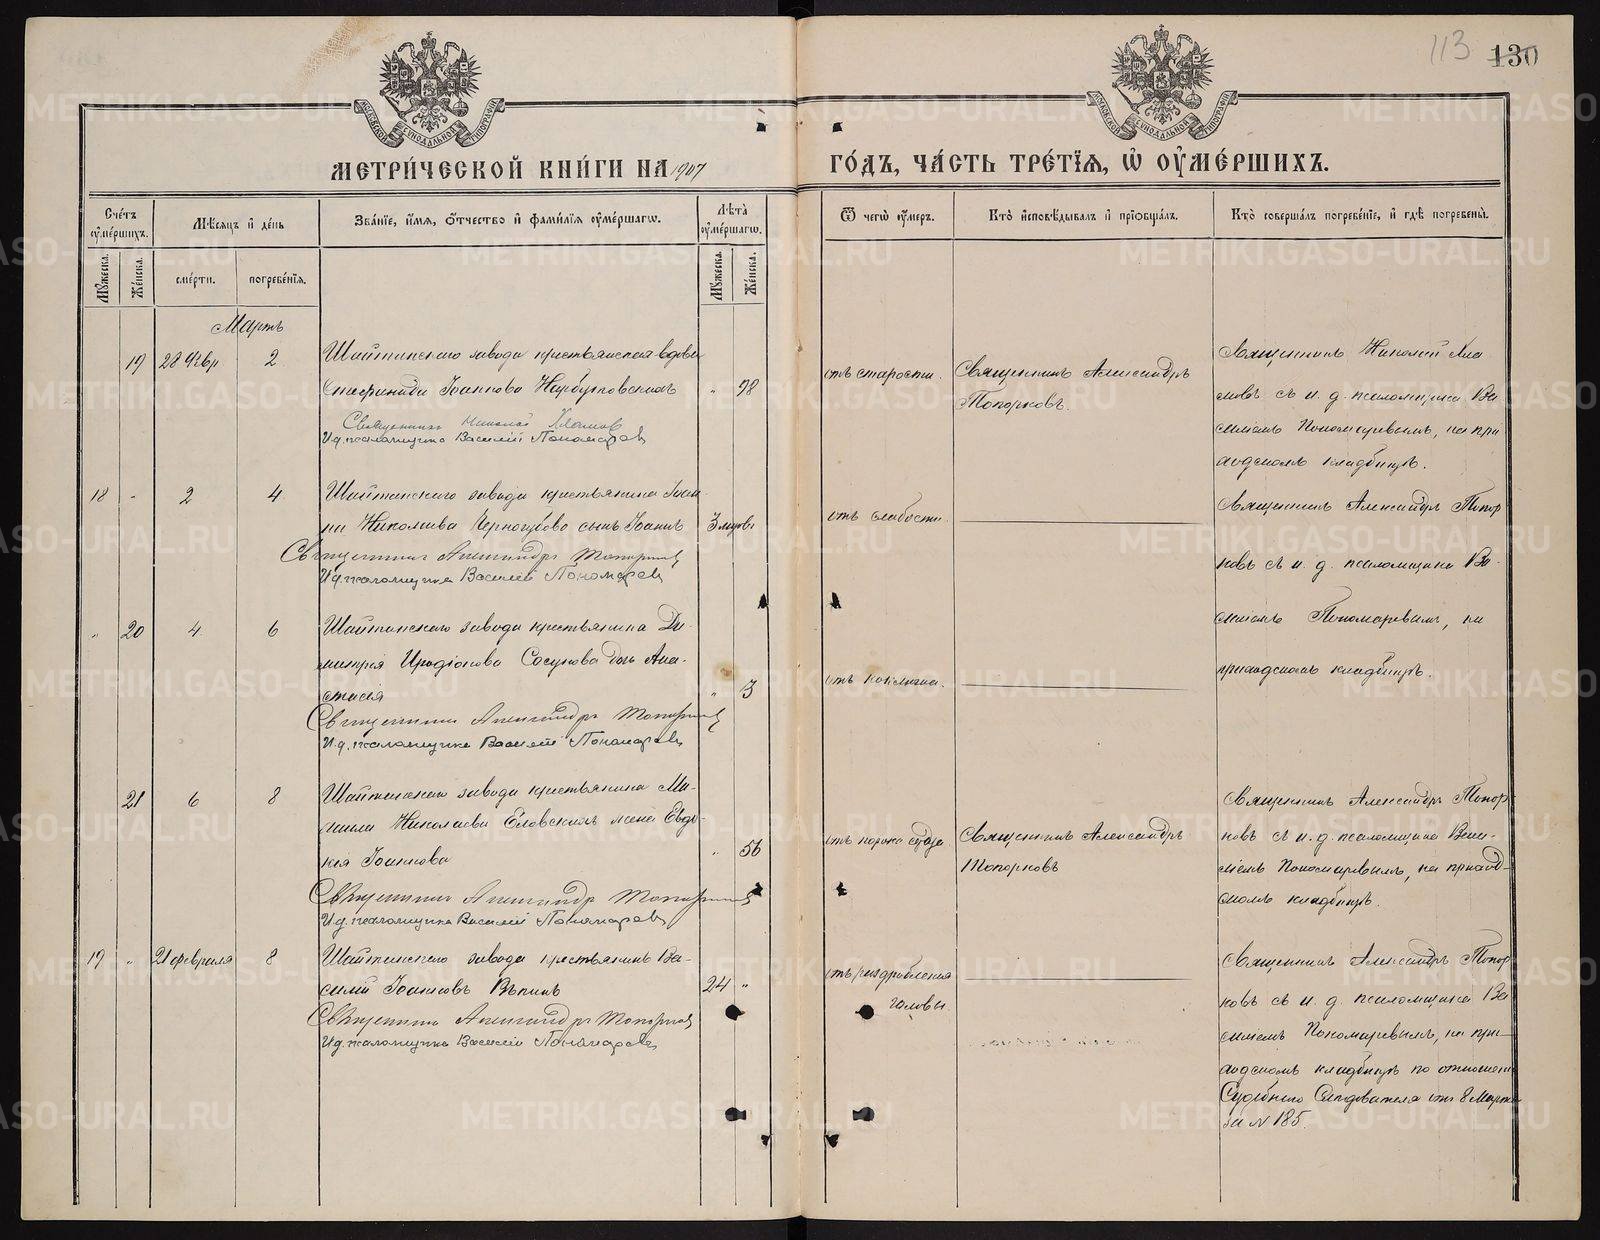 113 130
МОСКОВСКОЙ СѴНОДАЛЬНОЙ ТИПОГРАФІИ
МОСКОВСКОЙ СѴНОДАЛЬНОЙ ТИПОГРАФІИ
МЕТРИ́ЧЕСКОЙ КНИ́ГИ НА 1907
ГО́ДЪ, ЧА́СТЬ ТРЕ́ТЇѦ, Ѡ҆ ОУ҆МЕ́РШИХЪ.
Сче́тъ оу҆ме́ршихъ.
Мѣ́сѧцъ и҆ де́нь
Зва́нїе, и҆́мѧ, ѻ҆́тчество и҆ фами́лїѧ оу҆ме́ршагѡ.
Лѣ́та оу҆ме́ршагѡ.
Ѿ чегѡ̀ оу҆́меръ.
Кто̀ и҆сповѣ́дывалъ и҆ прїѻбща́лъ.
Кто̀ соверша́лъ погребе́нїе, и҆ гдѣ̀ погребены̀.
Мꙋ́жеска.
Же́нска.
сме́рти.
погребе́нїѧ.
Мꙋ́жеска.
Же́нска.
Мартъ
19 28 Февр 2
Шайтанскаго завода крестьянская вдова
Іоаннова Нарбутовскихъ " 78
Священникъ Николай
И.д. псаломщика Василій Пономаревъ
отъ старости.
Священникъ Александръ
Топорковъ.
Священникъ Николай
съ и. д. псаломщика Ва
силіемъ Пономаревымъ, на при
ходскомъ кладбищѣ.
18 - 2 4
Шайтанскаго завода крестьянина Іоан
на Николаева Черногубова сынъ Іоаннъ 3 мѣсяц.
Священникъ Александръ Топорковъ
И.д. псаломщика Василій Пономаревъ
отъ слабости.
Священникъ Александръ Топор
ковъ съ и. д. псаломщика Ва-
силіемъ Пономаревымъ, на
приходскомъ кладбищѣ.
" 20 4 6
Шайтанскаго завода крестьянина Ди-
митрія Иродіонова Сосунова дочь Ана-
стасія " 3
Священникъ Александръ Топорковъ
И.д. псаломщика Василій Пономаревъ
отъ коклюша.
21 6 8
Шайтанскаго завода крестьянина Ми-
хаила Николаева Еловскихъ жена Евдо-
кія Іоаннова " 56
Священникъ Александръ Топорковъ
И.д. псаломщика Василій Пономаревъ
отъ порока сердца
Священникъ Александръ
Топорковъ
Священникъ Александръ Топор
ковъ съ и. д. псаломщика Васи-
ліемъ Пономаревымъ, на приход
скомъ кладбищѣ.
19 " 21 февраля 8
Шайтанскаго завода крестьянинъ Ва-
силій Іоанновъ Вѣпинъ 24 "
Священникъ Александръ Топорковъ
И.д. псаломщика Василій Пономаревъ
отъ раздробленія
головы.
Священникъ Александръ Топор
ковъ съ и. д. псаломщика Ва
силіемъ Пономаревымъ, на при-
ходскомъ кладбищѣ по отношенію
Судебнаго Слѣдователя отъ 8 Марта
за № 185.